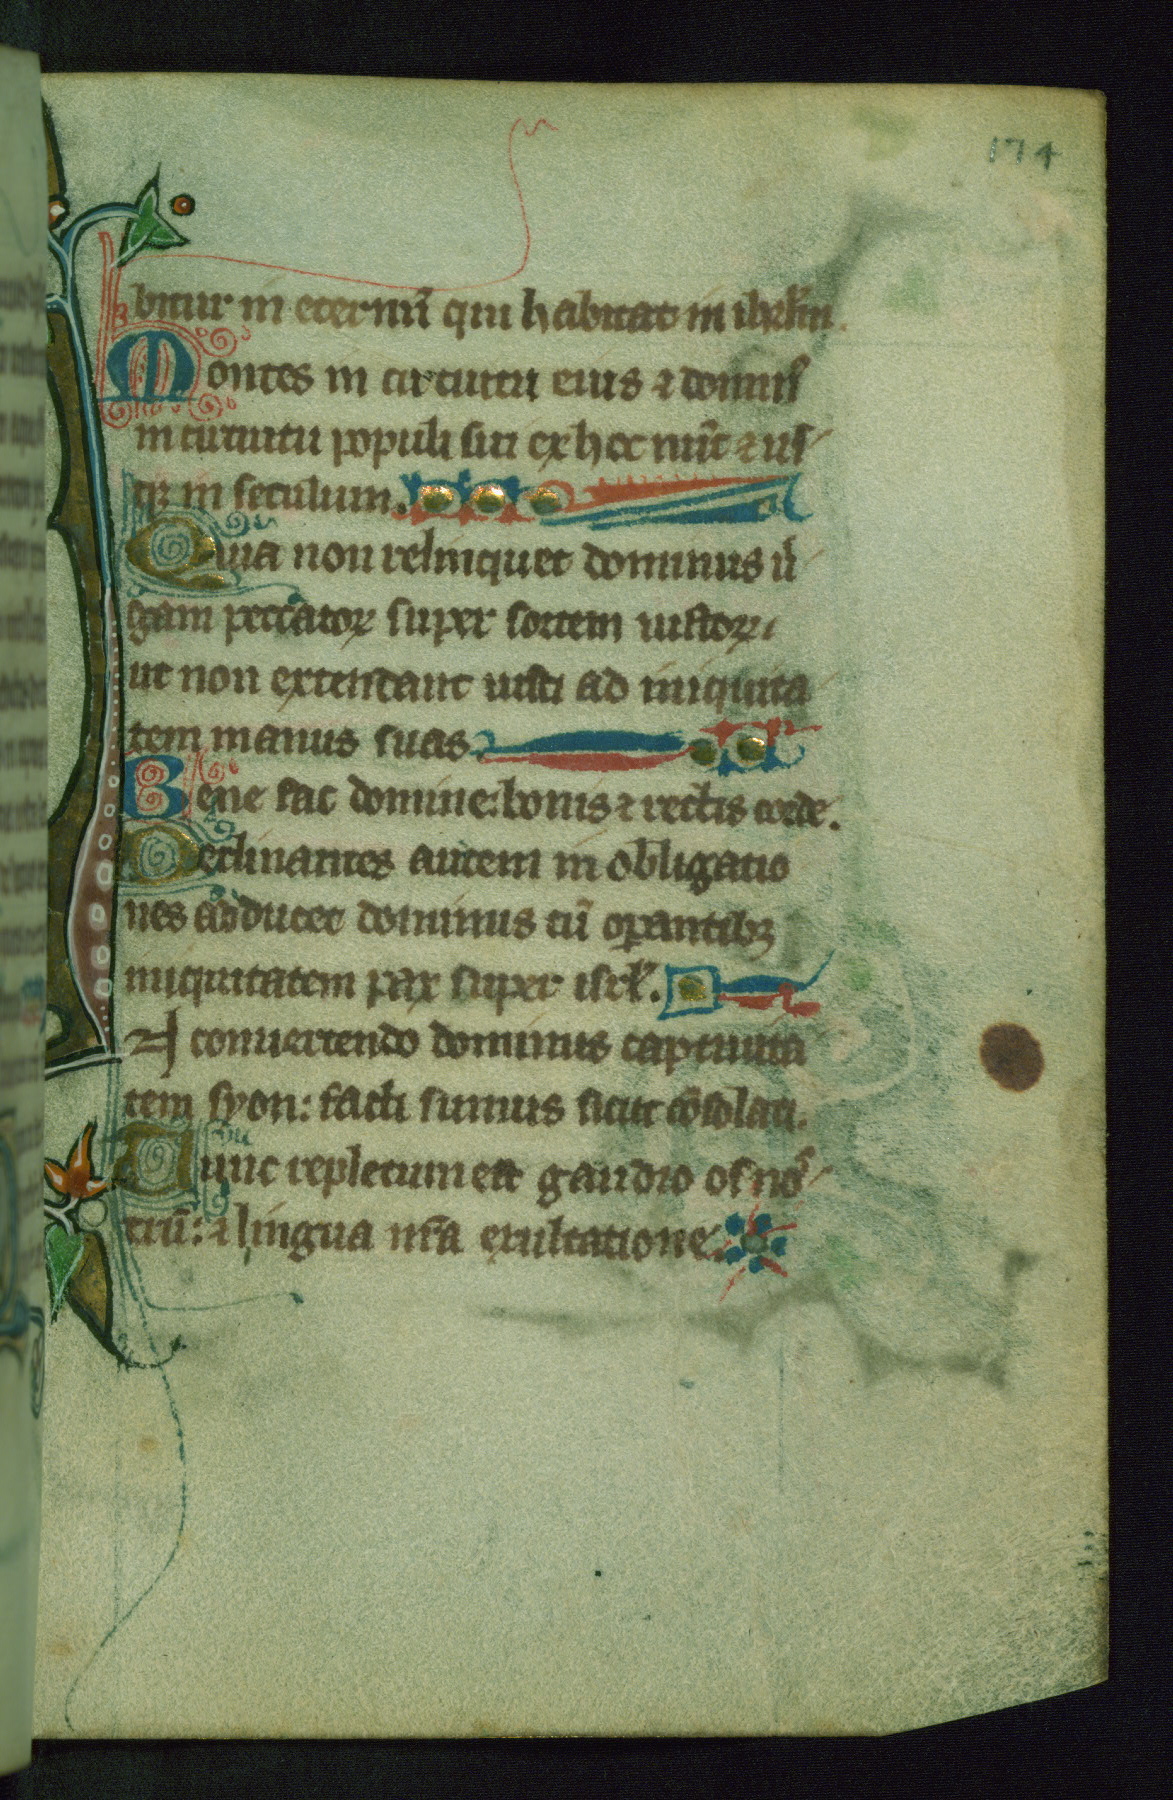 174
bitur in eternū qui habitat in ihrl̄m.
Montes in circuitu eius ⁊ dominꝰ
in circuitu populi sui ex hoc nūc ⁊ us
qꝫ in seculum.
Quia non relinquet dominus uͥ
gam peccatoꝝ super sortem iustoꝝ
ut non extendant iusti ad iniquita
tem manus suas
Bene fac domine: bonis ⁊ rectis corde.
Declinantes autem in obligatio
nes adducet dominus cū operantibꝫ
iniquitatem pax super isrl̄.
In conuertendo dominus captiuita
tem syon: facti sumus sicut cōsolati.
Tunc repletum est gaudio os noſ
trū: ⁊ lingua nr̄a exultatione.